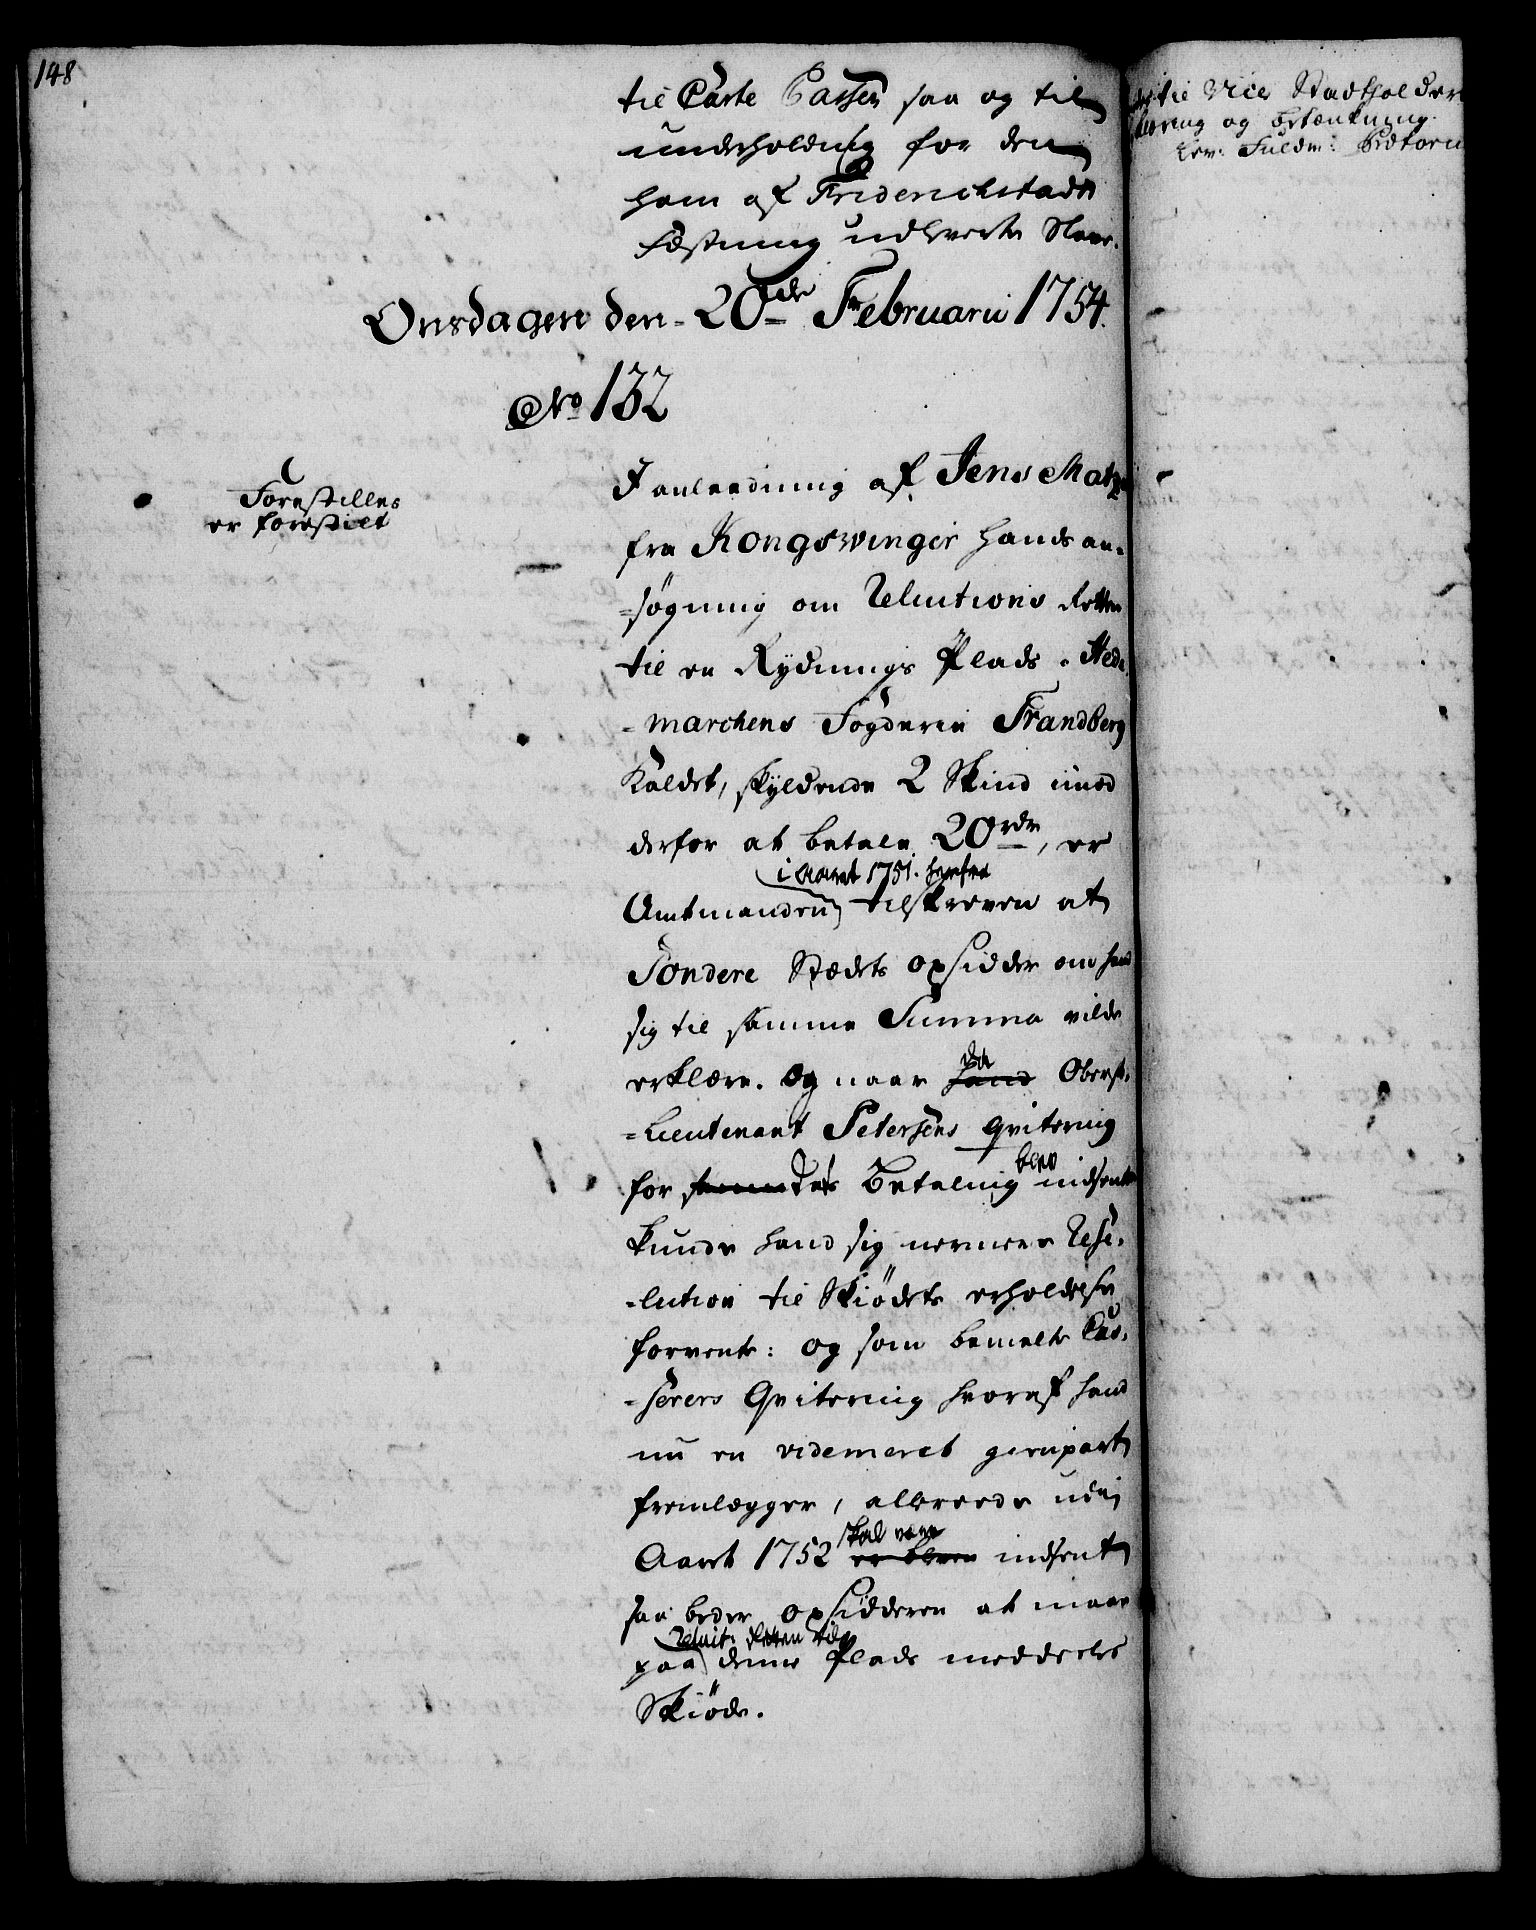 148
til Carte Cassen saa og til
underholdning for den
ham af Friderichstads
Fæstning udleverte Slave.
Onsdagen den 20de Februarii 1754.
No 132
Forestilles
er forestilet
I anleedning af Jens Matz
fra Kongswinger hands an-
=søgning om Reluitions Retten
til en Rydnings Plads i Hede-
=marchens Fogderie Strandberg
Kaldet, skyldende 2 Skind imod
derfor at betale 20rdr, er
i Aaret 1751. herfra
Amtmanden tilskreven at
Sondere Stædets opsidder om hand
sig til samme Summa vilde
erklære. Og naar hand da Oberst-
=Lieutenant Petersens Qvitering
for samme dets Betaling blev indsendt
kunde hand sig nermere Reso-
-lution til Skiødets erholdelse
forvente: og som bemelte Cas-
-serers Qvitering hvoraf hand
nu en videmeret gienpart
fremlegger, allereede udi
skal være
Aaret 1752 er bleven indsent
saa beder opsidderen at maae
Reluit: Retten til
paa denne Plads meddeeles
Skiøde.
til Vice Stadtholderen
og betænkning.
Lev: Fuldm: